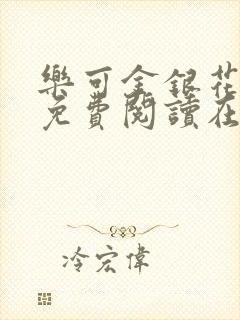 樂可金銀花
免費閱讀在
冷宏偉